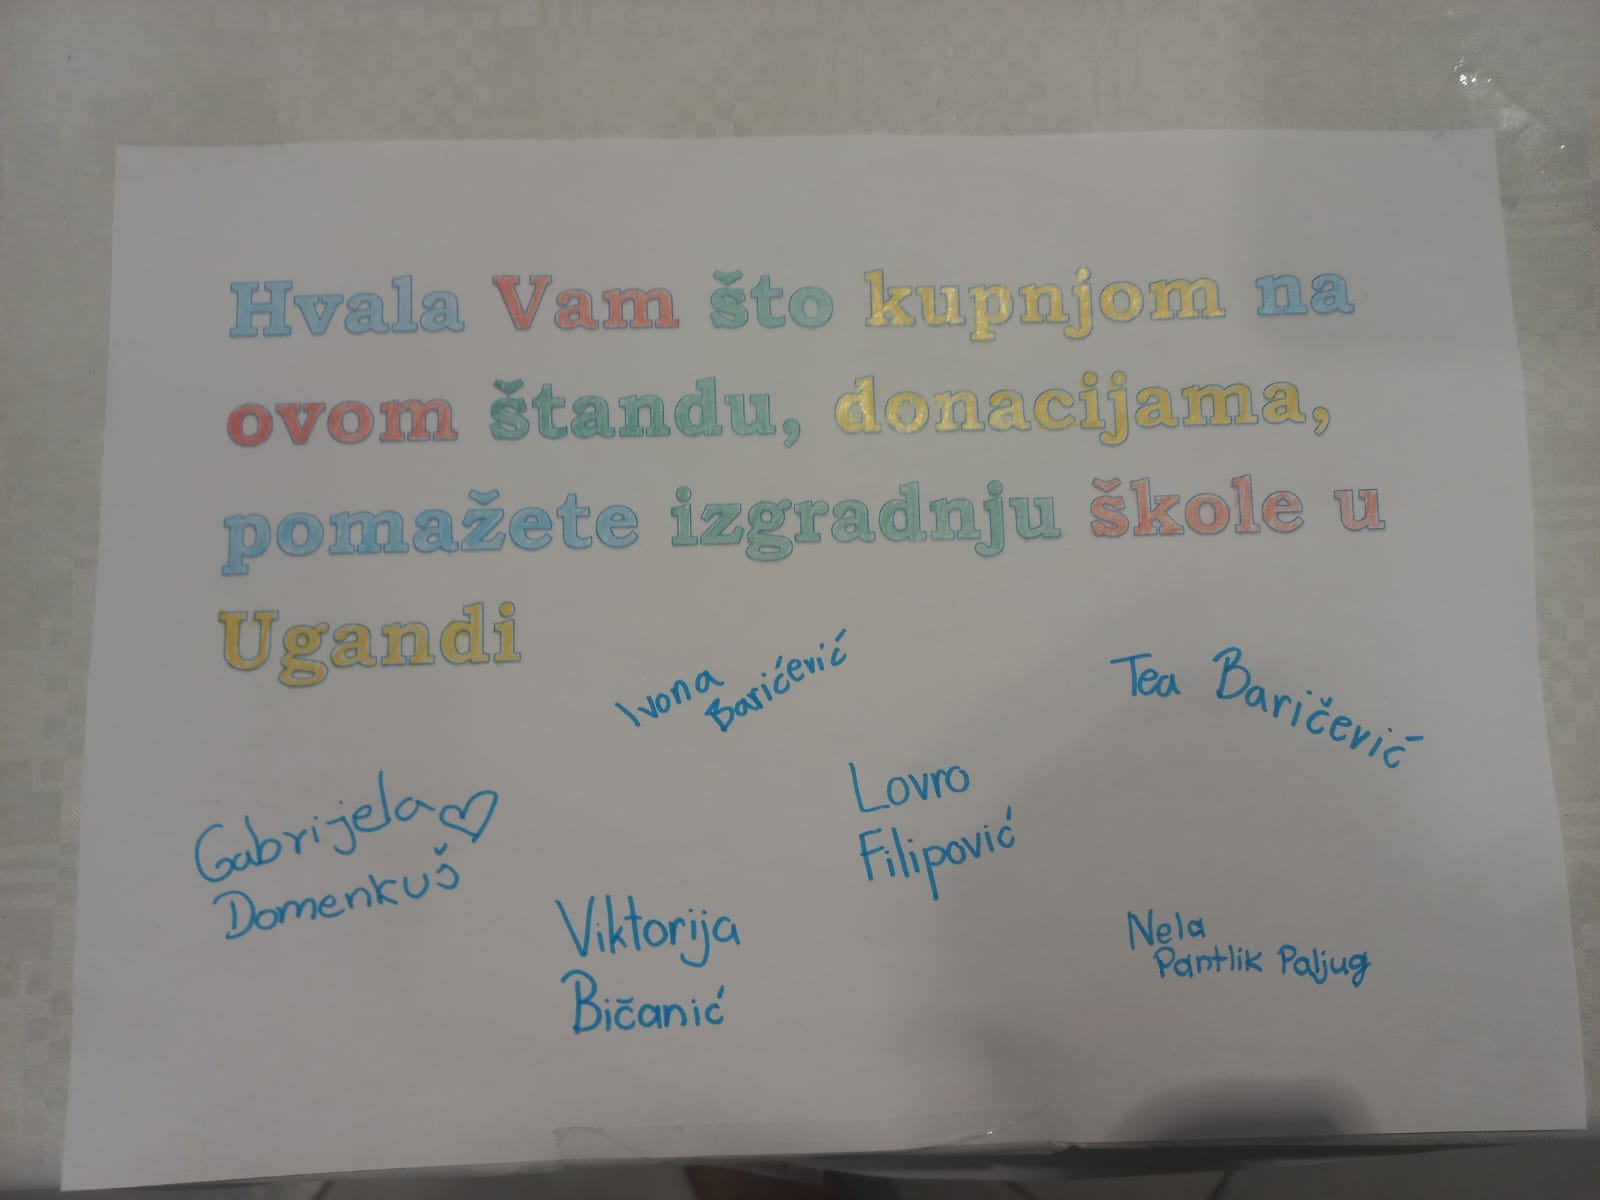 Hvala Vam što kupnjom na
ovom štandu, donacijama,
pomažete izgradnju škole u
Ugandi
Ivona
Barićević
Tea Baričević
Gabrijela
Domenkuš
Lovro
Filipović
Viktorija
Bičanić
Nela
Pantlik Paljug